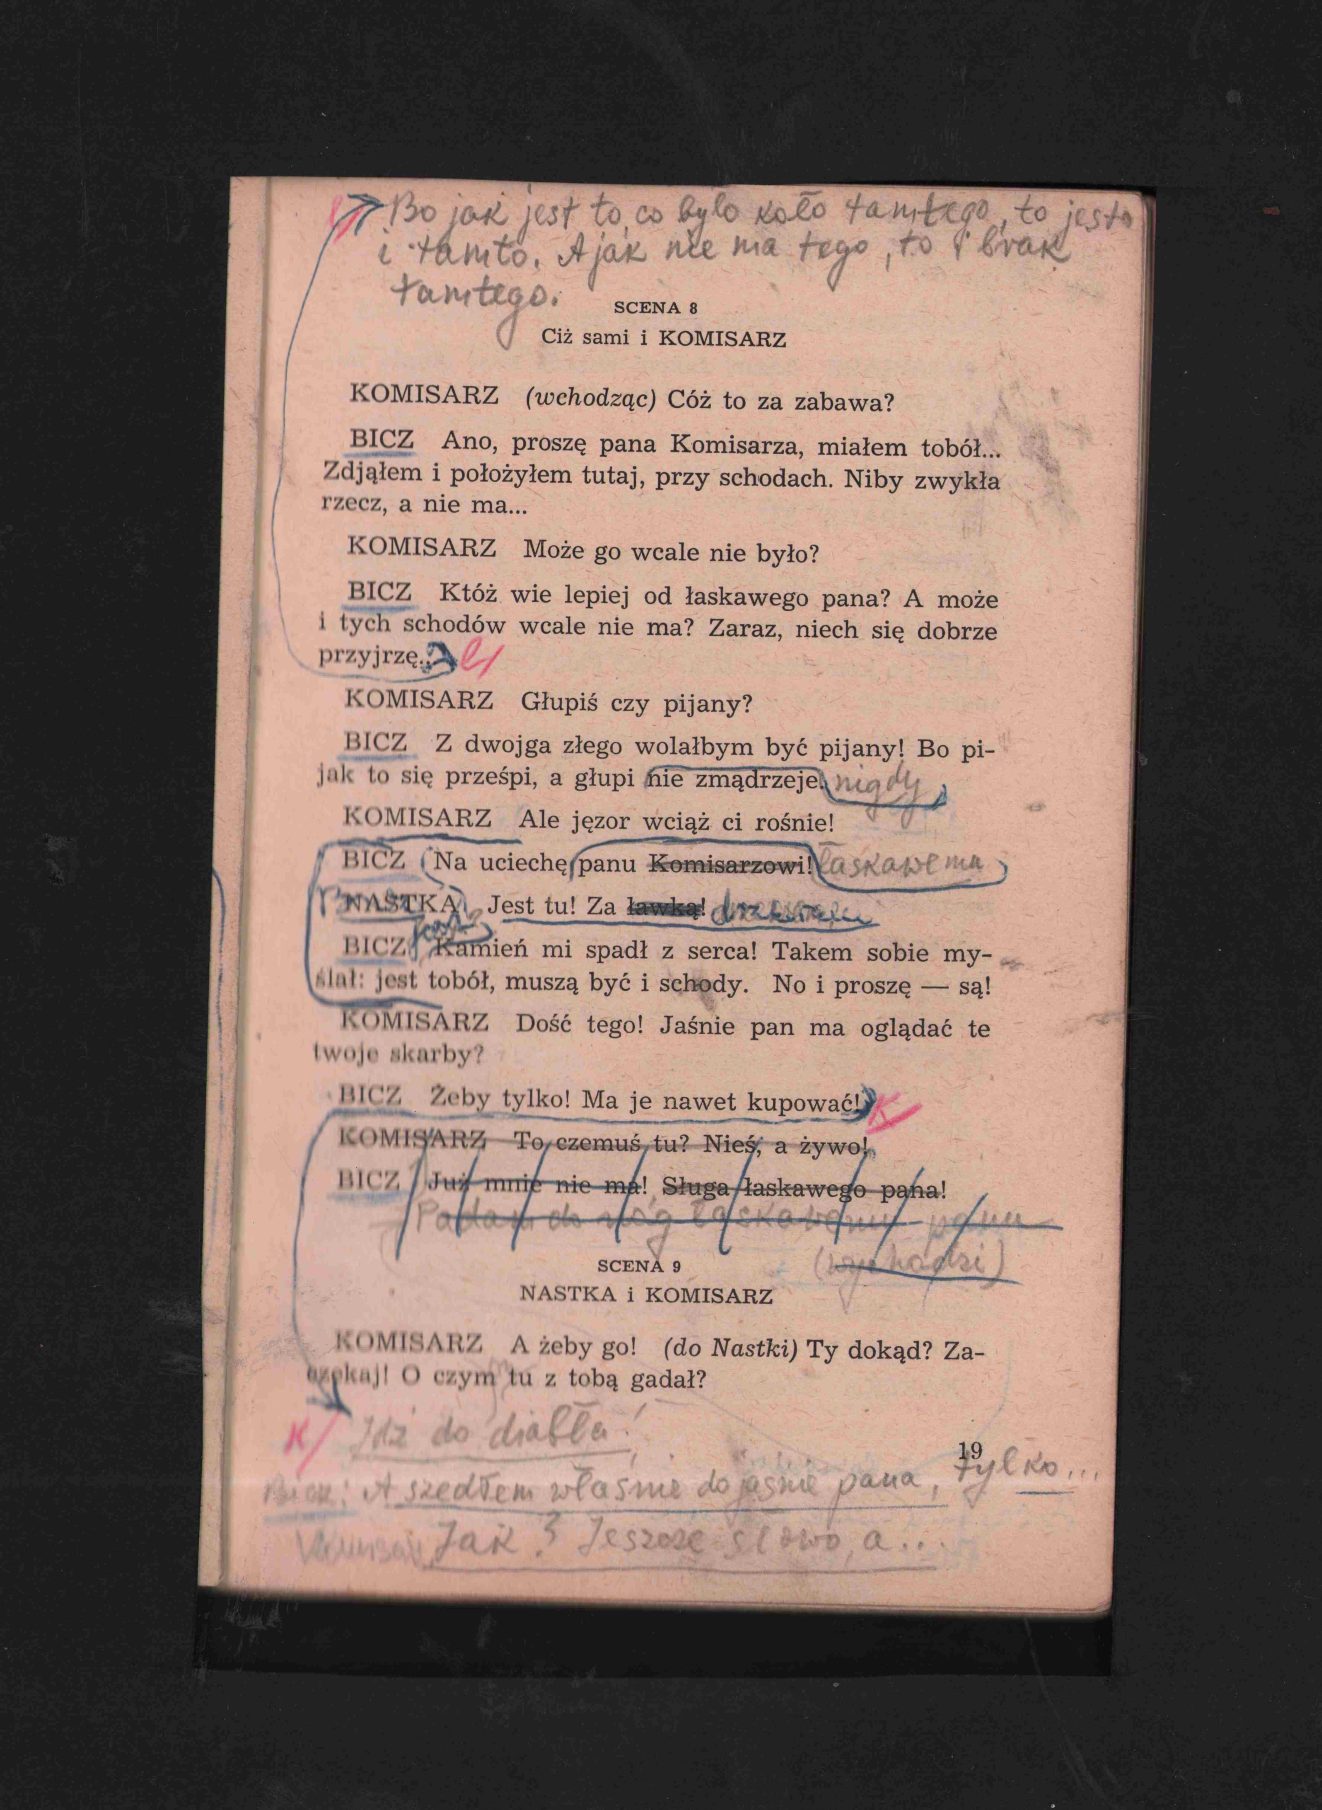 Bo jak jest to, co było koło tamtego, to jest
i tamto. A jak nie ma tego, to i brak
tamtego.
SCENA 8
Ciż sami i KOMISARZ
KOMISARZ (wchodząc) Cóż to za zabawa?
BICZ Ano, proszę pana Komisarza, miałem toból...
Zdjąłem i położyłem tutaj, przy schodach. Niby zwykła
rzecz, a nie ma...
KOMISARZ Może go wcale nie było?
BICZ Któż wie lepiej od łaskawego pana? A może
i tych schodów wcale nie ma? Zaraz, niech się dobrze
przyjrzę..
KOMISARZ Głupiś czy pijany?
BICZ Z dwojga złego wolałbym być pijany! Bo pi-
jak to się prześpi, a głupi nie zmądrzeje. nigdy
KOMISARZ Ale jęzor wciąż ci rośnie!
BICZ Na uciechę panu Komisarzowi! łaskawemu
NASTKA Jest tu! Za ławką!
BICZ Kamień mi spadł z serca! Takem sobie my-
ślał: jest toból, muszą być i schody. No i proszę — są!
KOMISARZ Dość tego! Jaśnie pan ma oglądać te
twoje skarby?
BICZ Żeby tylko! Ma je nawet kupować! K
KOMISARZ To czemuś tu? Nieś, a żywo!
BICZ Już mnie nie ma! Sługa łaskawego pana!
Padam do nóg łaskawemu panu
(wychodzi)
SCENA 9
NASTKA i KOMISARZ
KOMISARZ A żeby go! (do Nastki) Ty dokąd? Za-
czekaj! O czym tu z tobą gadał?
K/ Idź do diabła!
19
Bicz: A szedłem właśnie do jaśnie pana, tylko...
Komisarz Jak? Jeszcze słowo, a...